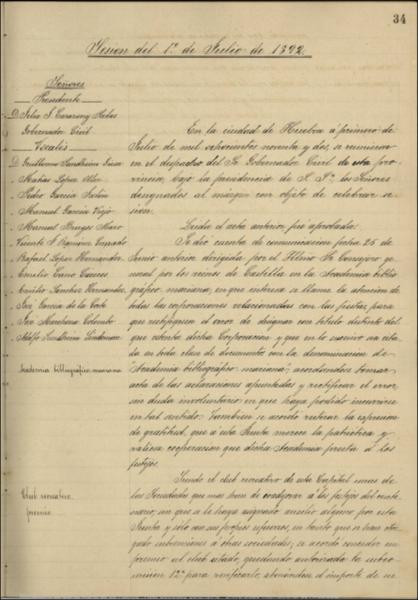 34
Sesion del 1º de Julio de 1892.
Señores
Presidente
Gobernador Civil
Vocales
D. Guillermo Sundheim
Matías López
Pedro García
Manuel García Viejo
Manuel Burgos Mazo
Vicente
Rafael López Hernández
Emilio Cano Cáceres
Emilio Sánchez Hernández
José García de la Corte
José Marchena Colombo
Adolfo Sundheim Lindeman
En la ciudad de Huelva á primero de
Julio de mil ochocientos noventa y dos, se reunieron
en el despacho del Sr. Gobernador Civil de esta pro-
vincia, bajo la presidencia de los Señores
designados al márgen con objeto de celebrar se-
sión.
Leída el acta anterior, fué aprobada.
Academia bibliográfico mariana
Se dió cuenta de comunicación fecha 25 de
Junio anterior dirigida, por el Iltmo Sr Consejero ge-
neral por los reinos de Castilla en la Academia biblio-
gráfico mariana, en que interesa se llame la atención de
todas las corporaciones relacionadas con las fiestas para
que rectifiquen el error de designar con título distinto del
que ostenta dicha Corporacion y que en lo sucesivo se la
cite en toda clase de documentos con la denominacion de
Academia bibliográfico mariana; acordandose tomar
acta de las aclaraciones apuntadas y rectificar el error
sin duda involuntario en que haya podido incurrirse
en tal sentido. Tambien se acordó reiterar la expresion
de gratitud, que á esta Junta merece la patriótica y
valiosa cooperacion que dicha Academia presta á los
festejos.
Club recreativo
premio
Siendo el club recreativo de esta Capital una de
las Sociedades que mas han de coadyuvar á los festejos del cente-
nario, sin que se le haya asignado auxilio alguno por esta
Junta y sólo con sus propios esfuerzos, en tanto que se han otor-
gado subvenciones á otras sociedades, se acordó conceder un
premio al club citado, quedando autorizada la subco-
mision 12ª para verificarlo, abonándose el importe de su